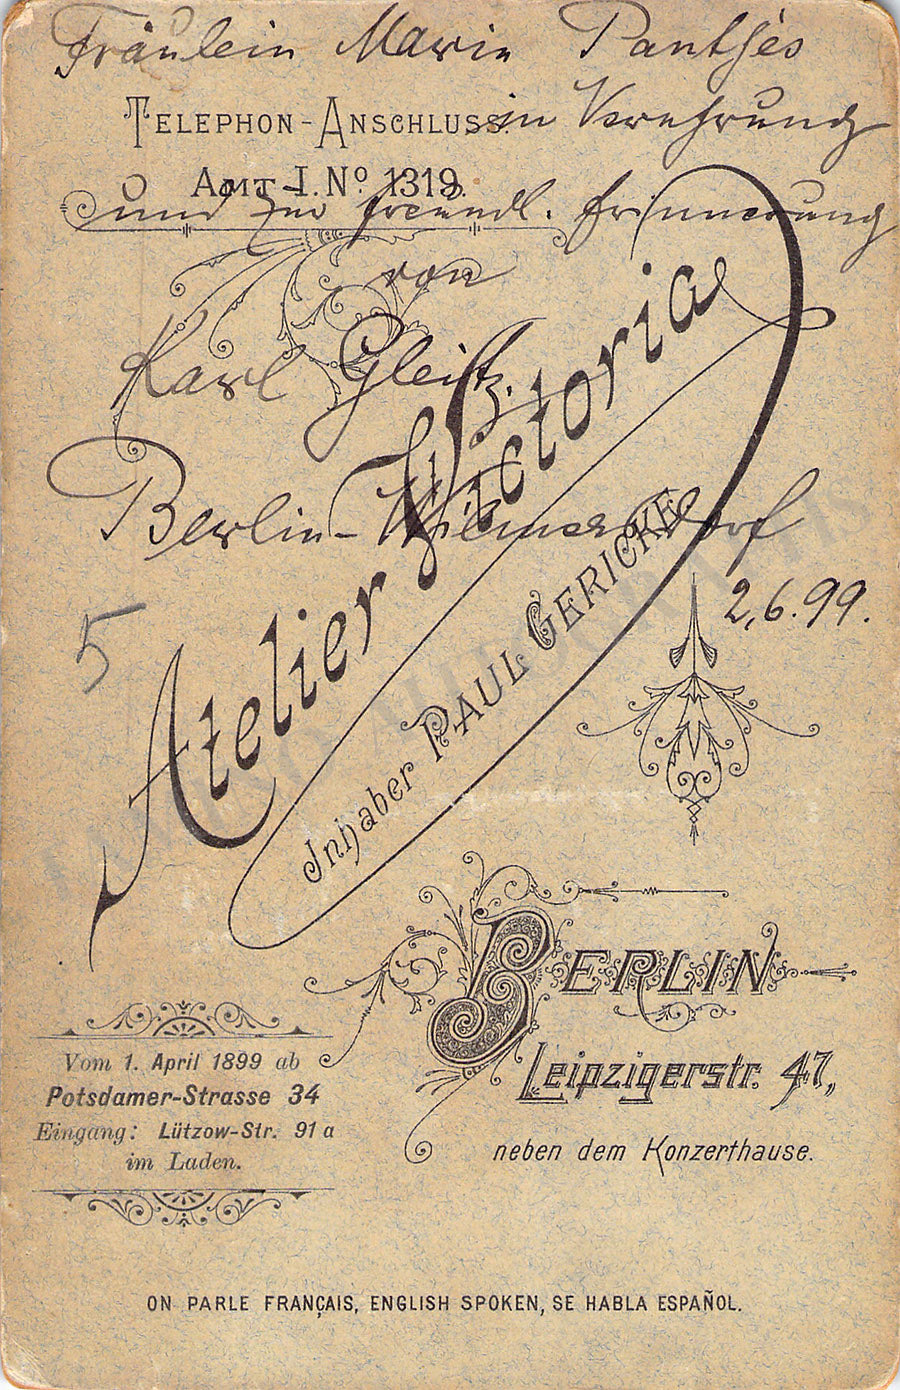 Fräulein Marie Panthès
in Verehrung
TELEPHON-ANSCHLUSS.
AMT I. No 1319.
und zur freundl. Erinnerung
von
Karl Gleitz.
Berlin-Wilmersdorf
2.6.99.
5
Atelier Victoria
Inhaber PAUL GERICKE
BERLIN
Leipzigerstr. 47,
neben dem Konzerthause.
Vom 1. April 1899 ab
Potsdamer-Strasse 34
Eingang: Lützow-Str. 91a
im Laden.
ON PARLE FRANÇAIS, ENGLISH SPOKEN, SE HABLA ESPAÑOL.